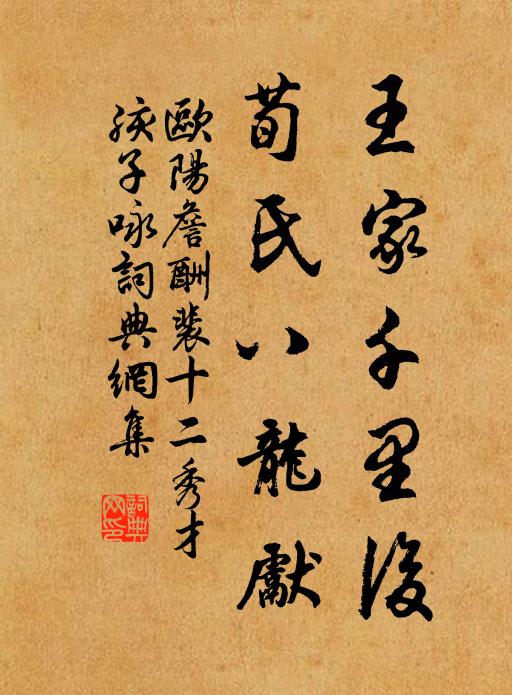 王家千里後
荀氏八龍獻
歐陽詹酬裴十二秀才
孩子咏詞典網集
詞典網印